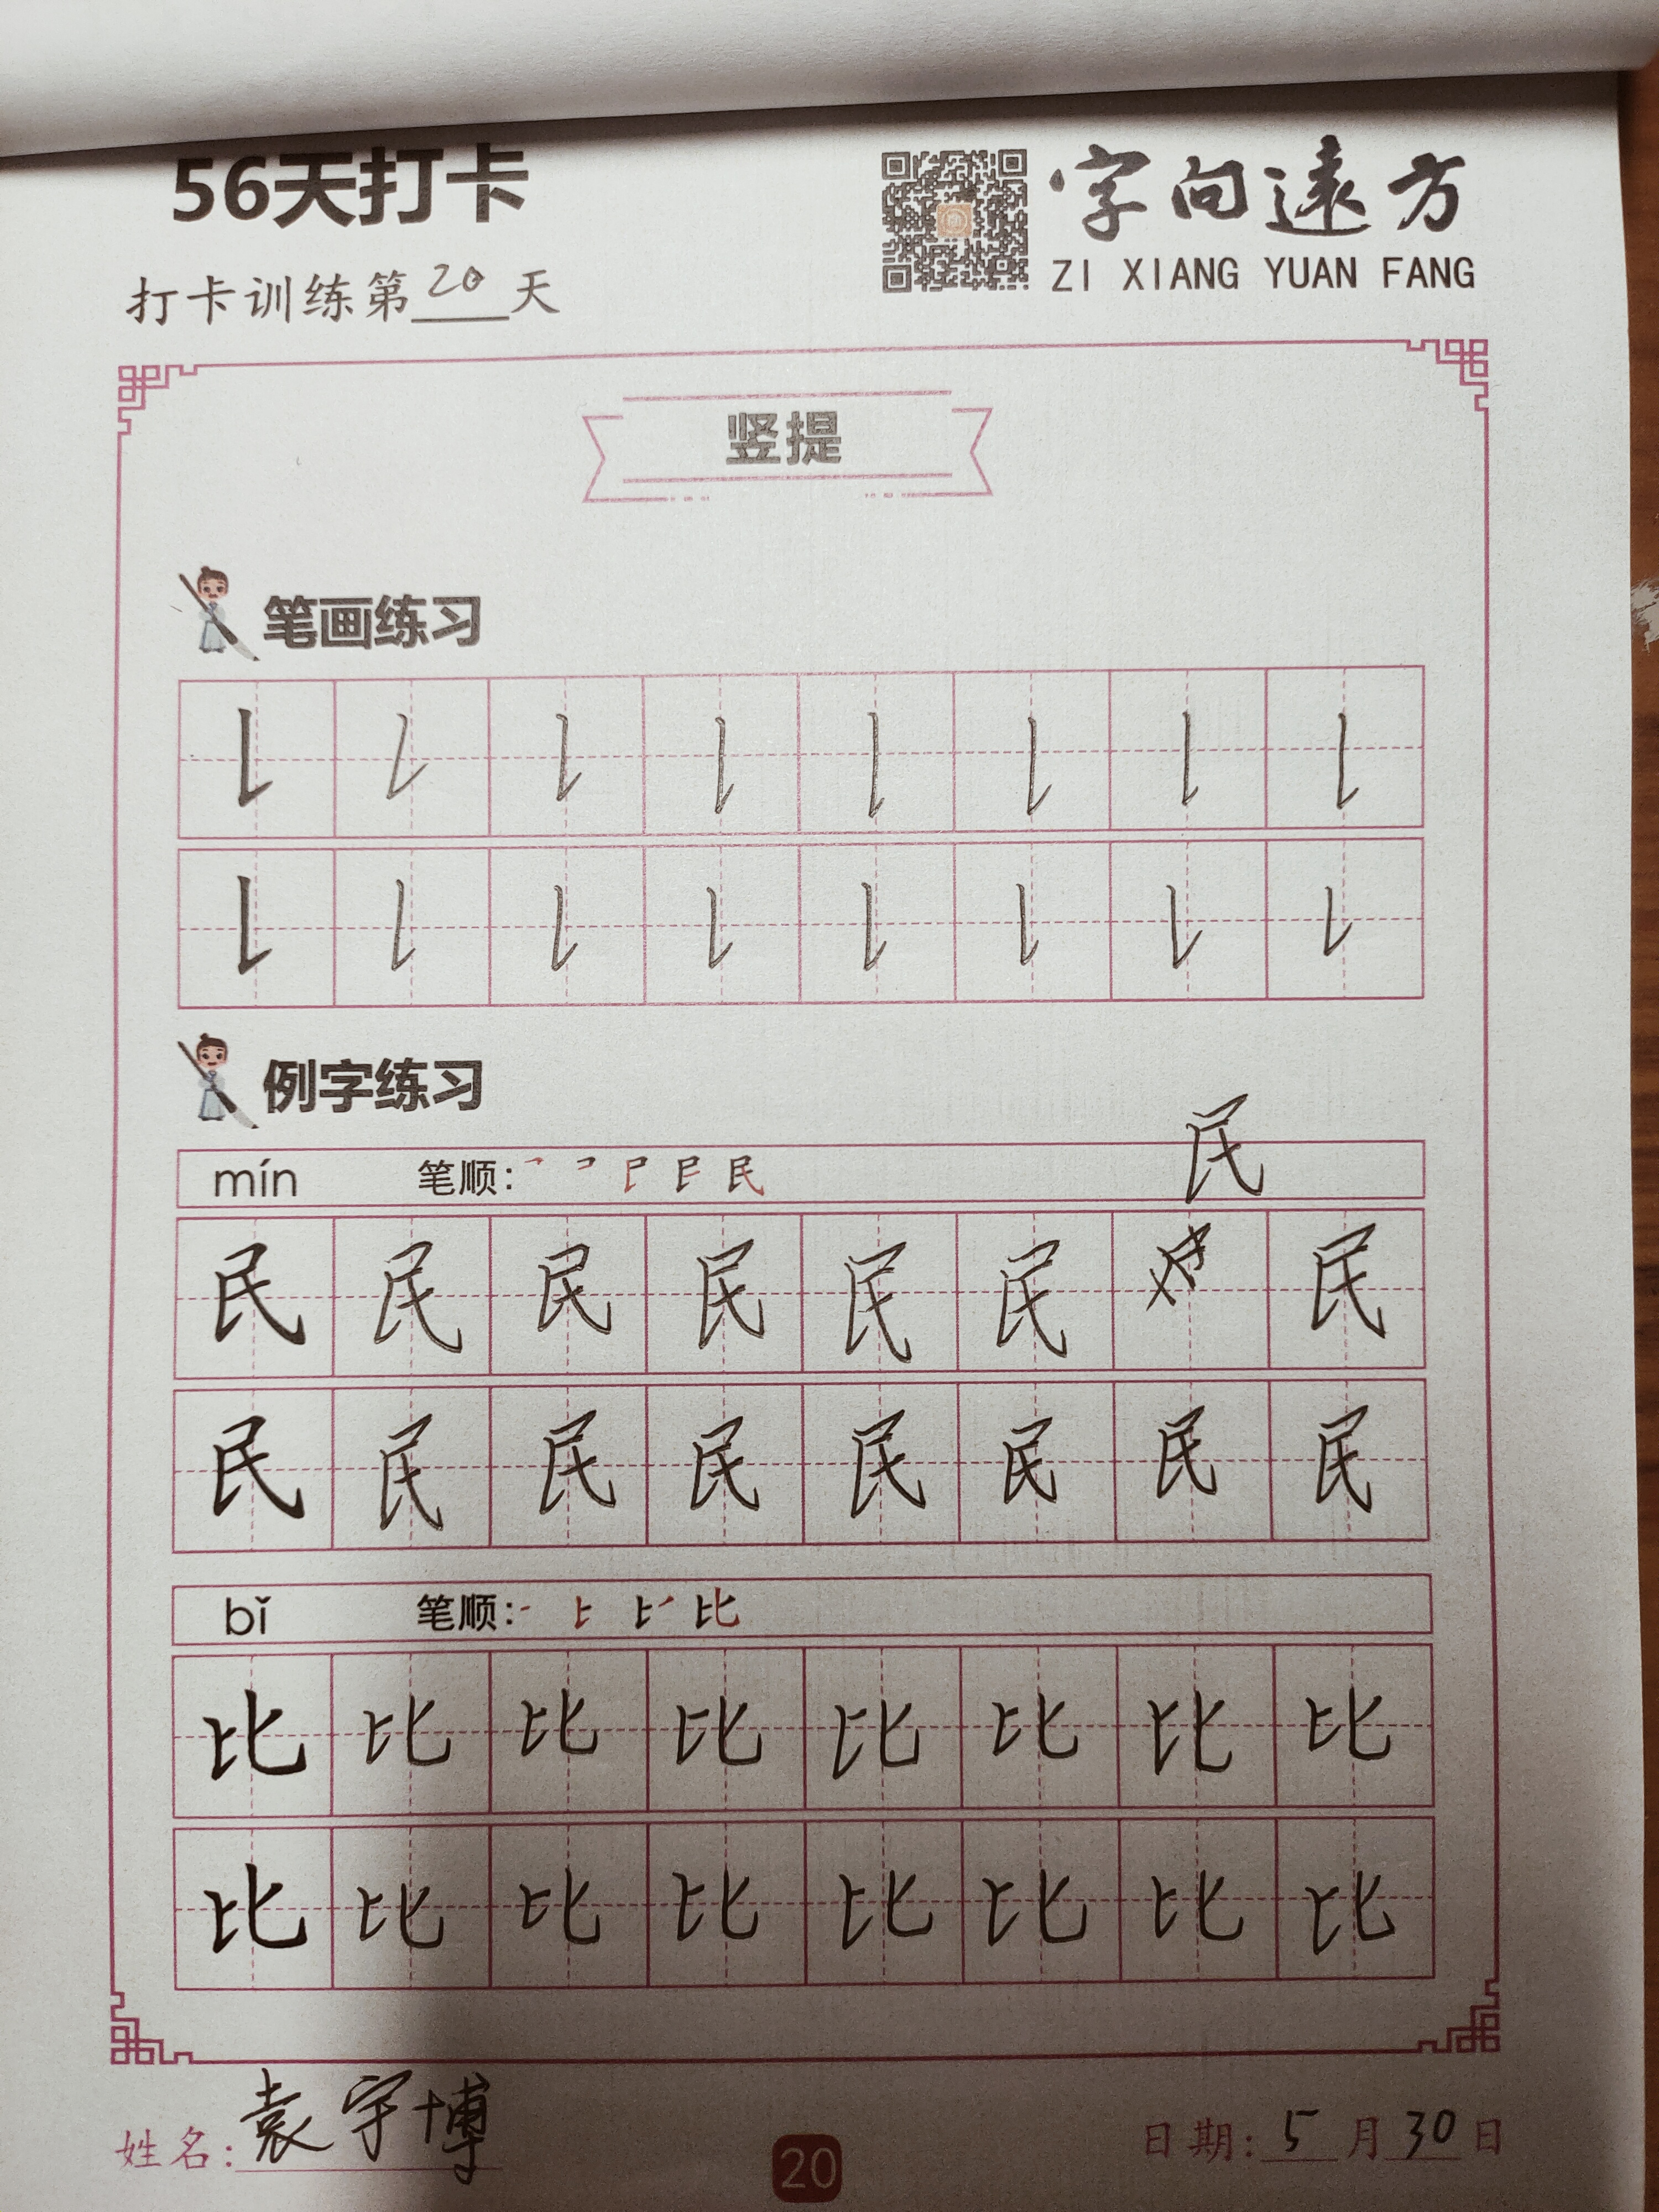 56天打卡
字向遠方
ZI XIANG YUAN FANG
打卡训练第20天
竖提
笔画练习
例字练习
民
mín 笔顺: 民
民 民 民 民 民 民 民
民 民 民 民 民 民 民 民
bǐ 笔顺: 比
比 比 比 比 比 比 比 比
比 比 比 比 比 比 比 比
姓名: 袁宇博
20
日期: 5月30日